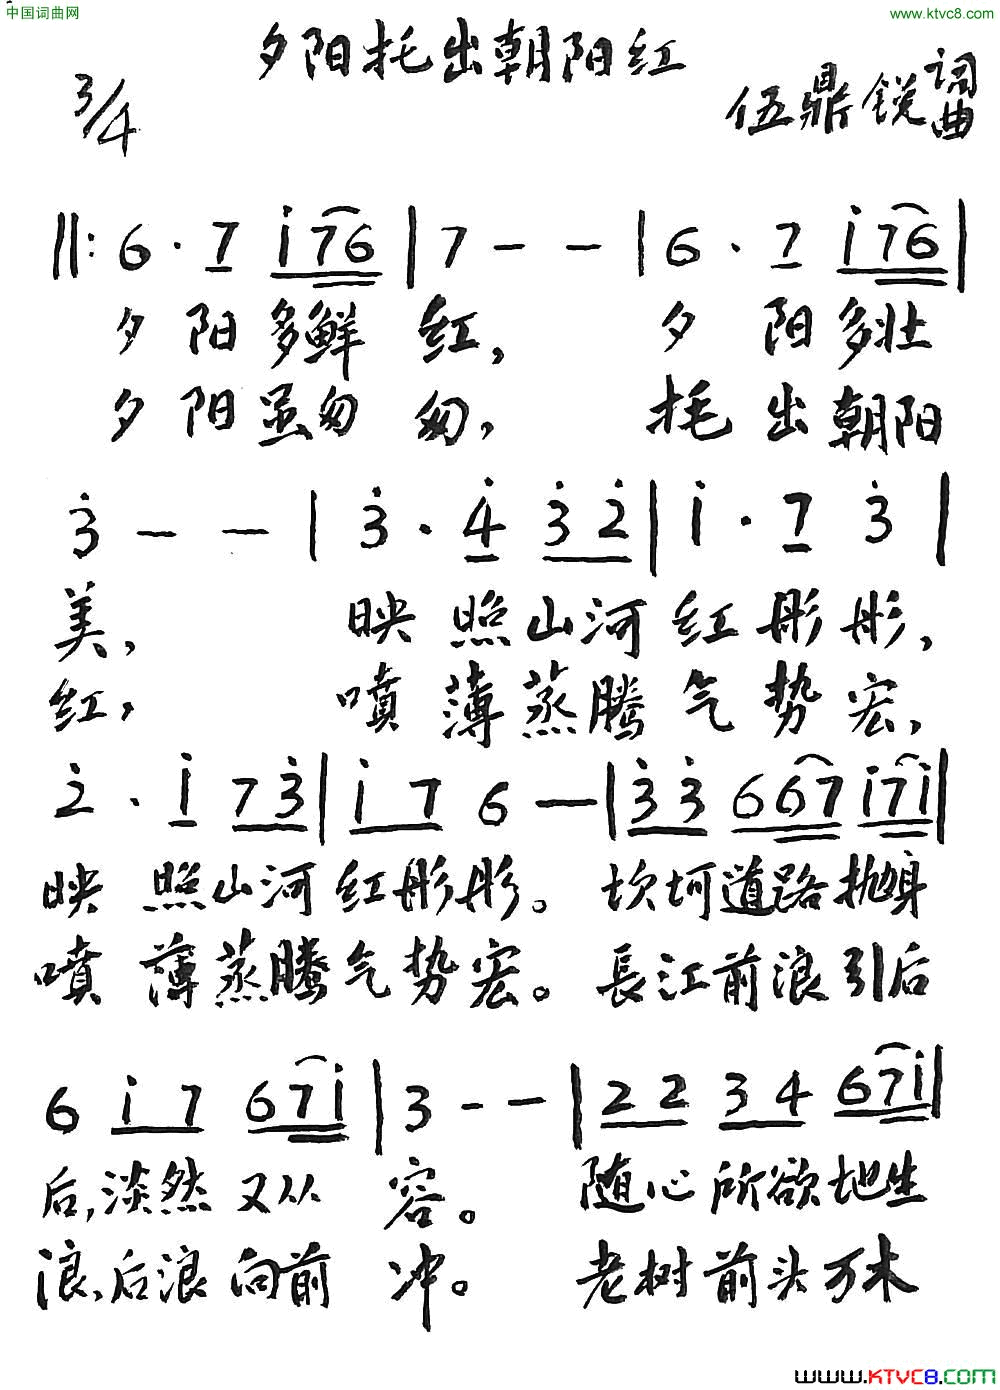 中国词曲网
www.ktvc8.com
夕阳托出朝阳红
3/4
伍鼎锐 词曲
||: 6 · 7 i 7 6 | 7 - - | 6 · 7 i 7 6 |
夕阳多鲜红，夕阳多壮
夕阳虽匆匆，托出朝阳
3 - - | 3 · 4 3 2 | i · 7 3 |
美，映照山河红彤彤，
红，噴薄蒸腾气势宏，
2 · i 7 3 | i 7 6 - | 3 3 6 6 7 i 7 i |
映照山河红彤彤。坎坷道路抛身
噴薄蒸腾气势宏。長江前浪引后
6 i 7 6 7 i | 3 - - | 2 2 3 4 6 7 i |
后，淡然又从容。随心所欲地生
浪、后浪向前冲。老树前头万木
www.KTVC8.com